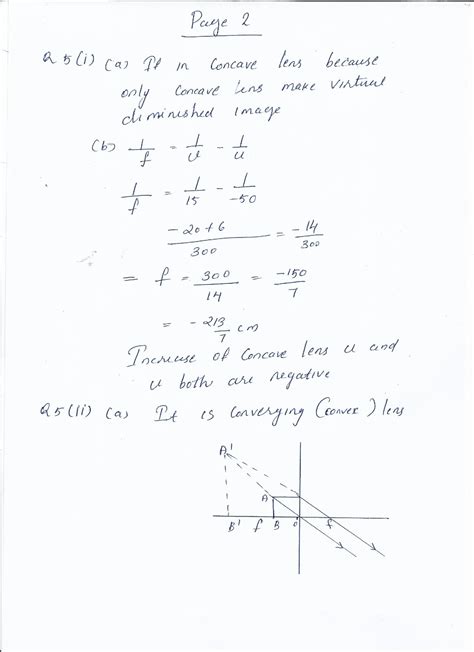 Page 2
Q 5(i) (a) It in Concave lens because
only Concave lens make virtual
diminished image
(b) 1/f = 1/v - 1/u
1/f = 1/15 - 1/-50
-20+6/300 = -14/300
= f = 300/14 = -150/7
= -213/7 cm
Increase of Concave lens u and
u both are negative
Q5(ii) (a) It is Converging (convex) lens
A'
A
B' f B O f